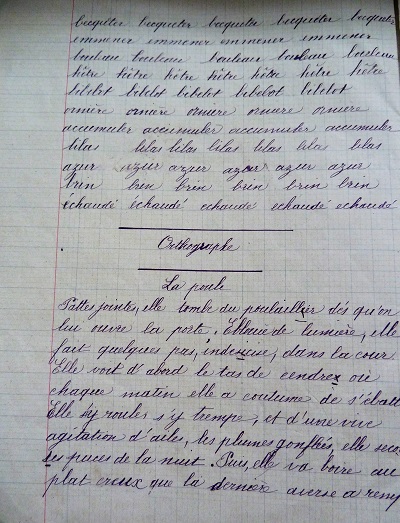 becqueter becqueter becqueter becqueter becqueter
emmener emmener emmener emmener
bouleau bouleau bouleau bouleau bouleau
hêtre hêtre hêtre hêtre hêtre hêtre hêtre
bibelot bibelot bibelot bibelot bibelot
ornière ornière ornière ornière ornière
accumuler accumuler accumuler accumuler
lilas lilas lilas lilas lilas lilas lilas
azur azur azur azur azur azur
brin brin brin brin brin brin
échaudé échaudé echaudé echaudé echaudé
Orthographe
La poule
Pattes jointes, elle tombe du poulaillier dés qu'on
lui ouvre la porte. Éblouie de lumière, elle
fait quelques pas, indencise, dans la cour.
Elle voit d'abord le tas de cendrex où
chaque matin elle a coutume de s'ébatt
Elle s'y roule, s'y trempe, et d'une vive
agitation d'ailes, les plumes gonflées, elle seco
ses puces de la nuit. Puis, elle va boire au
plat creux que la dernière averse a remp